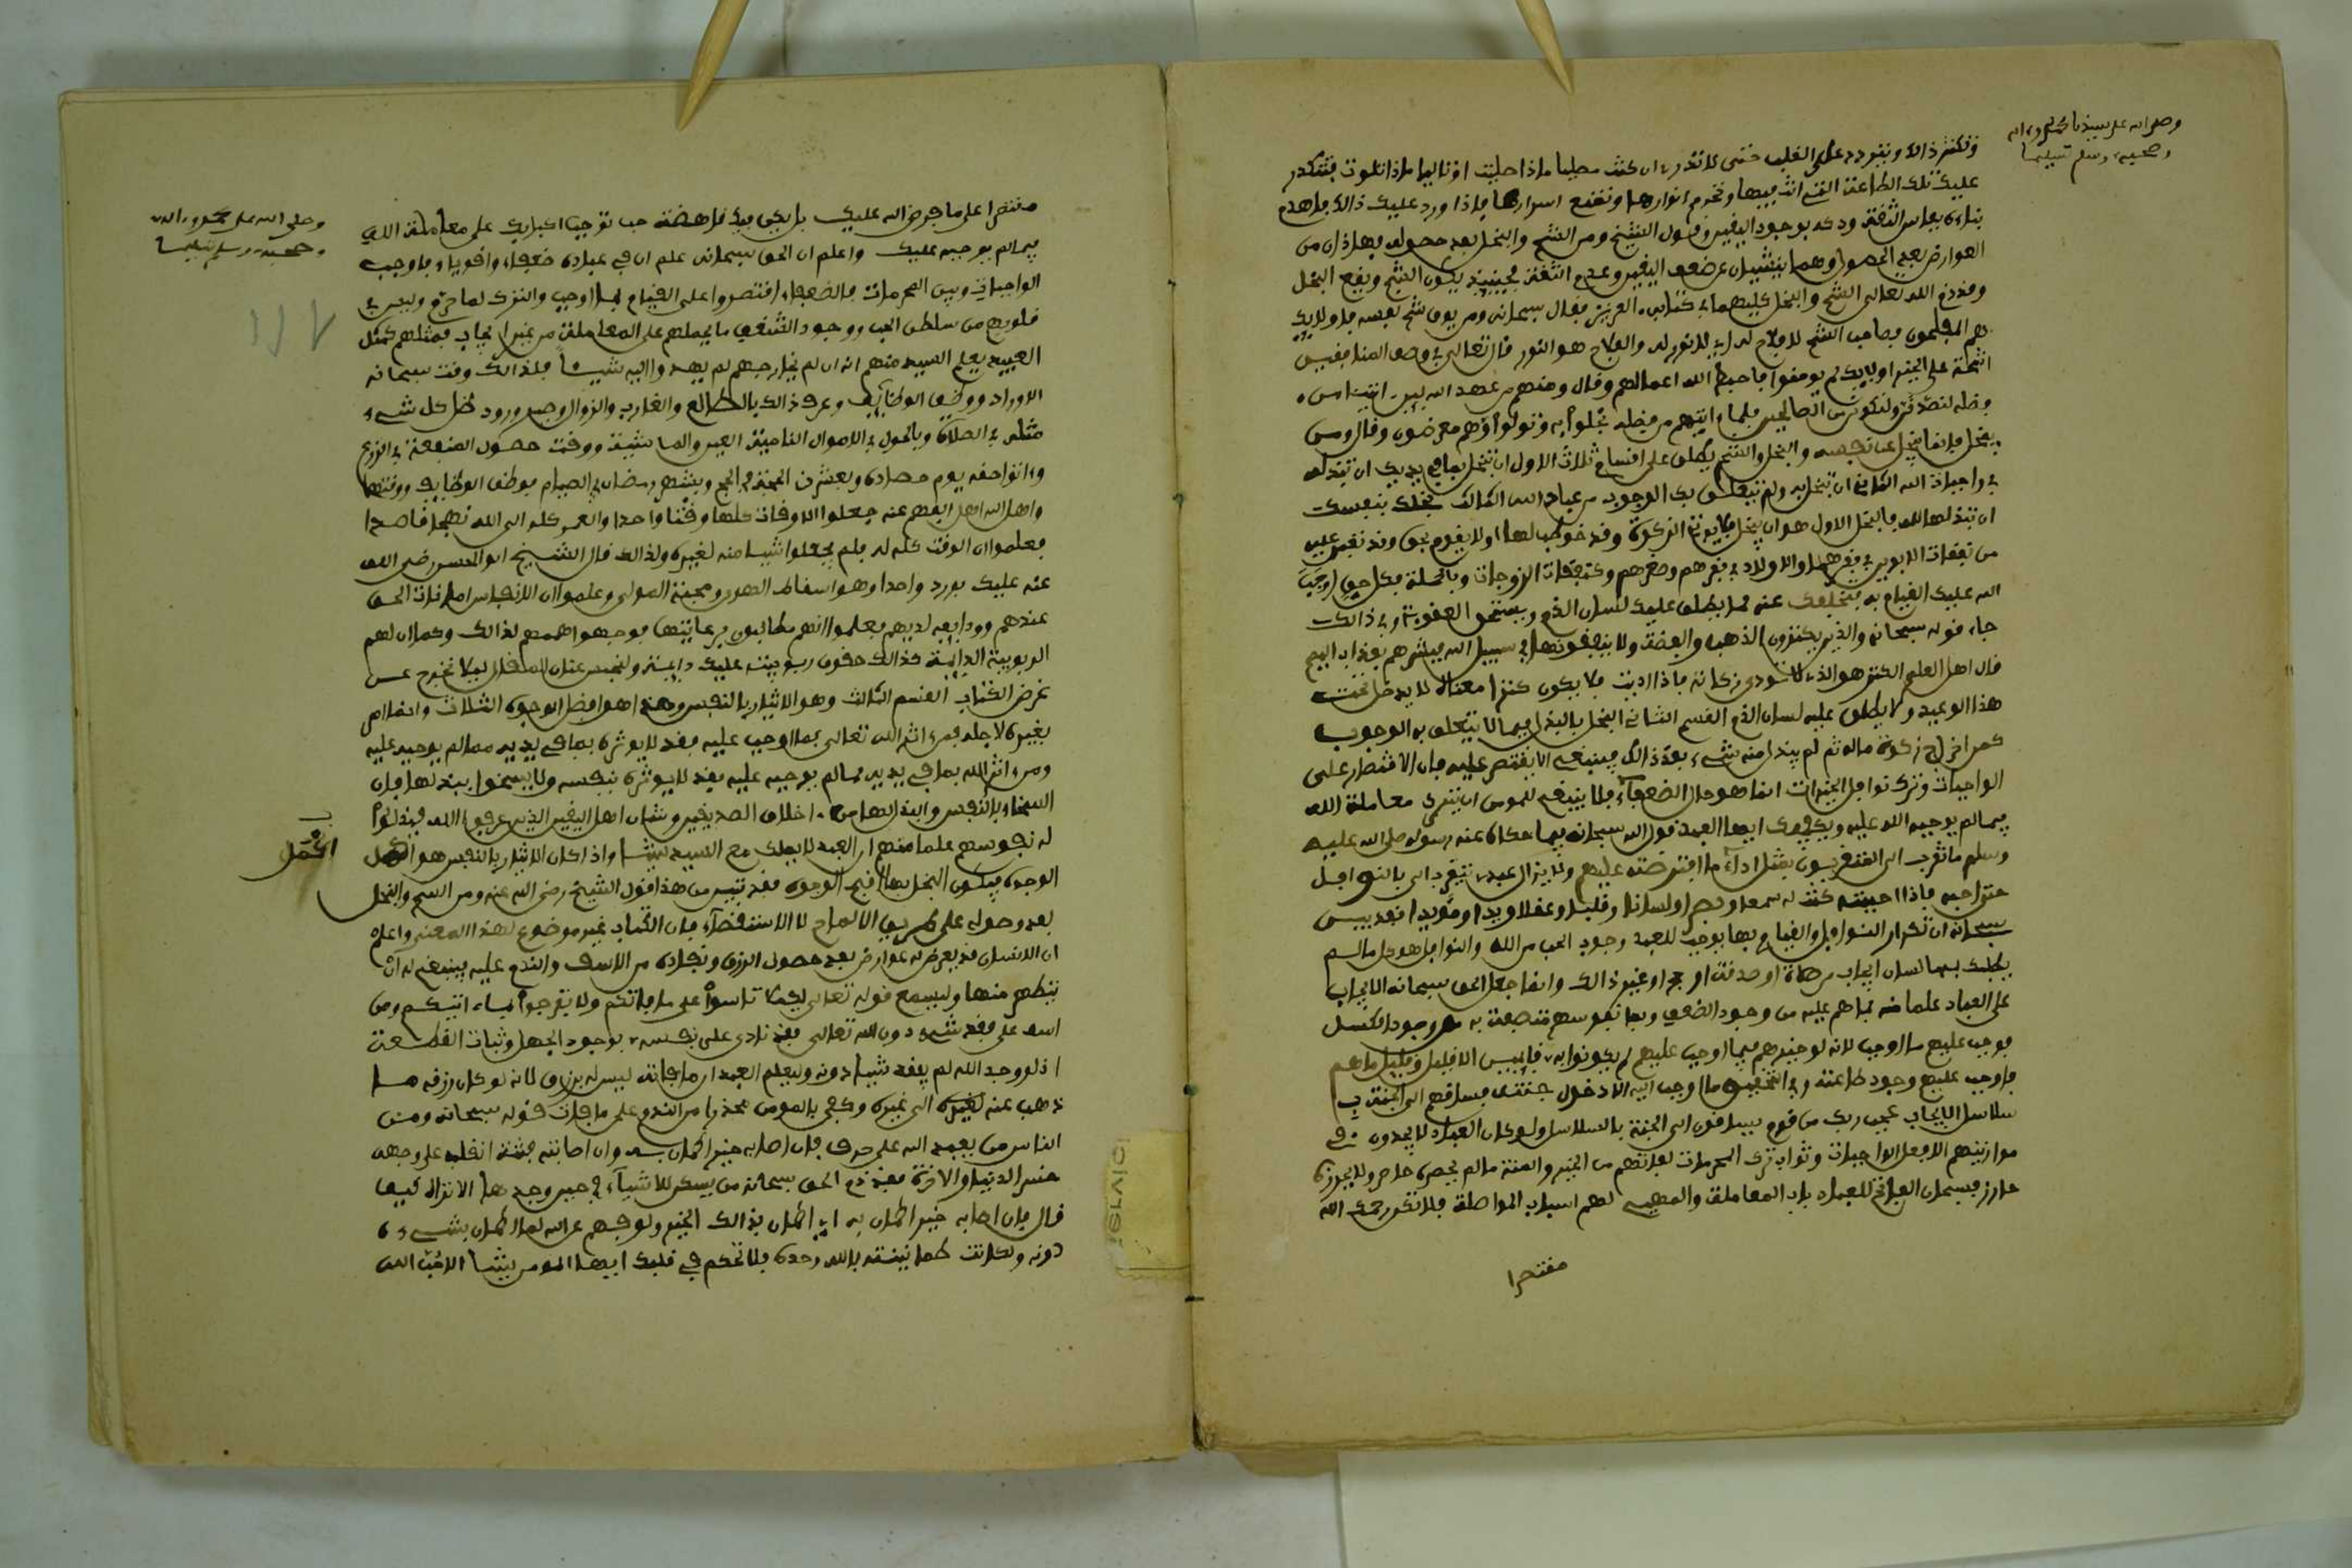 وصلى الله على سيدنا محمد وءاله
وصحبه وسلم تسليما
وتكثر ذلك وتتردد على القلب حتى لا تدري ان كنت مصليا ماذا صليت او تاليا ماذا تلوت فتتكدر
عليك تلك الطاعة التي انت فيها وتحرم انوارها وتمنع اسرارها فاذا ورد عليك ذالك فاهدم
بناءه بفاس الثقة ودكه بوجود اليقين وقول الشيخ ومن الشح والبخل بعد حصوله فهاذان من
العوارض بعد الحصول وهما ينشئان عن ضعف اليقين وعدم الثقة فحينئذ يكون الشح ويقع البخل
وقد ذم الله تعالى الشح والبخل كليهما في كتابه العزيز فقال سبحانه ومن يوق شح نفسه فاولايك
هم المفلحون فصاحب الشح لا فلاح له اي لا نور له والفلاح هو النور قال تعالى في وصف المنافقين
اشحة على الخير اولايك لم يومنوا فاحبط الله اعمالهم وقال ومنهم من عهد الله ليـن اتينا من
فضله لنصدقن ولنكونن من الصالحين فلما ءاتيهم من فضله بخلوا به وتولوا وهم معرضون وقال ومن
يبخل فانما يبخل عن نفسه والبخل والشح يطلق على اقسام ثلاث الاول ان تبخل بما في يديك ان تبذله
في واجبات الله الثاني ان تبخل به ولم يتعلق بك الوجوب من عباد الله الثالث بخلك بنفسك
ان تبذلها لله فالبخل الاول هو ان يبخل فلا يوتي الزكوة وقد خوطب لها او لا يقوم بحق وقد تعين عليه
من نفقات الابوين في فقرهما والاولاد في فقرهم وصغرهم وكنفقات الزوجات وبالجملة فكل حق اوجب
الله عليك القيام به فتخلفك عنه مما يطلق عليك لسان الذم ويستحق العقوبة وفي ذالك
جاء قوله سبحانه والذين يكنزون الذهب والفضة ولا ينفقونها في سبيل الله فبشرهم بعذاب اليم
قال اهل العلم الكنز هو الذي لا تودى زكاته فاذا اديت فلا يكون كنزا معناه لا يدخل تحت
هذا الوعيد ولا يطلق عليه لسان الذم القسم الثاني البخل بالبذل فيما لا يتعلق به الوجوب
كمن اخرج زكوة ماله ثم لم يبذل منه شيء بعد ذالك فينبغي الا يقتصر عليه فان الاقتصار على
الواجبات وترك نوافل الخيرات انما هو حال الضعفاء فلا ينبغي للمومن ان يترك معاملة الله
فيما لم يوجبه الله عليه ويكفيك ايها العبد قول الله سبحانه فيما حكاه عنه رسوله صلى الله عليه
وسلم ما تقرب الي المتقربون بمثل اداء ما افترضته عليهم ولا يزال عبدي يتقرب الي بالنوافل
حتى احبه فاذا احببته كنت له سمعا وبصرا ولسانا وقلبا وعقلا ويدا ومؤيدا فقد بين
سبحانه ان تكرار النوافل والقيام بها يوجب للعبد وجود الحب من الله والنوافل هو كل ما لم
يطلبك بها لسان ايجاب من صلاة او صدقة او حج او غير ذالك وانما جعل الحق سبحانه الايجاب
على العباد علما منه بما هم عليه من وجود الضعف وبما نفوسهم متصفة به من وجود الكسل
فوجب عليهم ما اوجب لانه لو خيرهم فيما اوجب عليهم لم يكونوا به قائمين الا قليل وقليل ما هم
فاوجب عليهم وجود طاعته وفي التحقيق ما اوجب اليه الا دخول جنته فساقهم الى الجنة بـ
سلاسل الايجاب عجب ربك من قوم يساقون الى الجنة بالسلاسل ولو كان العباد لا يجدون في
موازينهم الا فعل الواجبات وثواب ترك المحرمات لفاتهم من الخير والمنة ما لم يحصره حاصر ولا يحرزه
حارز فسبحان الفاتح للعباد باب المعاملة والمهيئ لهم اسباب المواصلة فلا تكن رحمك الله
مقتصرا
وصلى الله على محمد وءاله
وصحبه وسلم تسليما
مقتصرا على ما فرض الله عليك بل لتكن فيك ناهضة حب توجب اكبابك على معاملة الله
فيما لم يوجبه عليك واعلم ان الحق سبحانه علم ان في عباده ضعفاء واقوياء فاوجب
الواجبات وبين المحرمات فالضعفاء اقتصروا على القيام بما اوجب والترك لما حرم وليس في
قلوبهم من سلطان الحب ووجود الشغف ما يحملهم على المعاملة من غير ايجاب فمثلهم كمثل
العبيد يعلم السيد منهم انه ان لم يخارجهم لم يهدوا اليه شيـا فلذالك وقت سبحانه
الاوراد ووظف الوظائف وعرف ذالك بالطالع والغارب والزوال وصيرورة ظل كل شيء
مثله في الصلاة وبالحول في الاموال النامية العين والماشية ووقت حصول المنفعة في الزرع
وءاتوا حقه يوم حصاده وبعشر ذي الحجة في الحج وبشهر رمضان في الصيام فوظف الوظايف ووقتها
واهل الله اهل الفهم عنه جعلوا الاوقات كلها وقتا واحدا والعمر كله الى الله نهجا قاصدا
فعلموا ان الوقت كله له فلم يجعلوا شيـا منه لغيره ولذالك قال الشيخ ابو الحسن رضي الله
عنه عليك بورد واحد وهو اسقاط الهوى ومحبة المولى وعلموا ان الانفاس امانات الحق
عندهم وودايعه لديهم فعلموا انهم مطالبون برعايتها فوجهوا هممهم لذالك وكما ان لهم
الربوبية الدايمة كذالك حقوق ربوبيته عليك دايمة ولنحبس عنان المقال ليلا نخرج عن
غرض الكتاب القسم الثالث وهو الايثار بالنفس وهذا هو افضل الوجوه الثلاث وانما امر
بغيره لاجله فمن ءاثر الله تعالى بما اوجب عليه فقد لا يوثره بما في يديه مما لم يوجبه عليه
ومن ءاثر الله بما في يديه مما لم يوجبه عليه فقد لا يوثره بنفسه ولا يسخوا ببذلها فان
السخاء بالنفس والبذل لها من اخلاق الصديقين وشان اهل اليقين الذين عرفوا الله فبذلوا
له نفوسهم علما منهم ان العبد لا يملك مع السيد شيـا واذا كان الايثار بالنفس هو اكمل
اكمل
الوجوه فيكون البخل بها اقبح الوجوه فقد تبين من هذا قول الشيخ رضي الله عنه ومن الشح والبخل
بعد حصوله على طريق الالماح لا الاستقصاء فان الكتاب غير موضوع لهذا المعنى واعلم
ان الانسان قد يعرض له عوارض بعد حصول الرزق ونفاده من الاسف والندم عليه فينبغي له ان
يتطهر منها وليسمع قوله تعالى لكيلا تاسوا على ما فاتكم ولا تفرحوا بما ءاتيكم ومن
اسف على فقد شيء دون الله تعالى فقد نادى على نفسه بوجود الجهل وثبات القطيعة
اذ لو وجد الله لم يفقد شيـا دونه وليعلم العبد ان ما فاته ليس له برزق لانه لو كان رزقه ما
ذهب عنه لغيره الى غيره وكفى بالمومن محذرا من الندم على ما فات قوله سبحانه ومن
الناس من يعبد الله على حرف فان اصابه خير اطمان به وان اصابته فتنة انقلب على وجهه
خسر الدنيا والاخرة فقد ذم الحق سبحانه من يسكن للاشياء في حين وجدها الا تراه كيف
قال فان اصابه خير اطمان به اي اطمان بذالك الخير ولو فهم عن الله لما اطمان بشيء
دونه ولكانت طمانينته بالله وحده فلا تحكم في قلبك ايها المومن شيـا الا حب الله